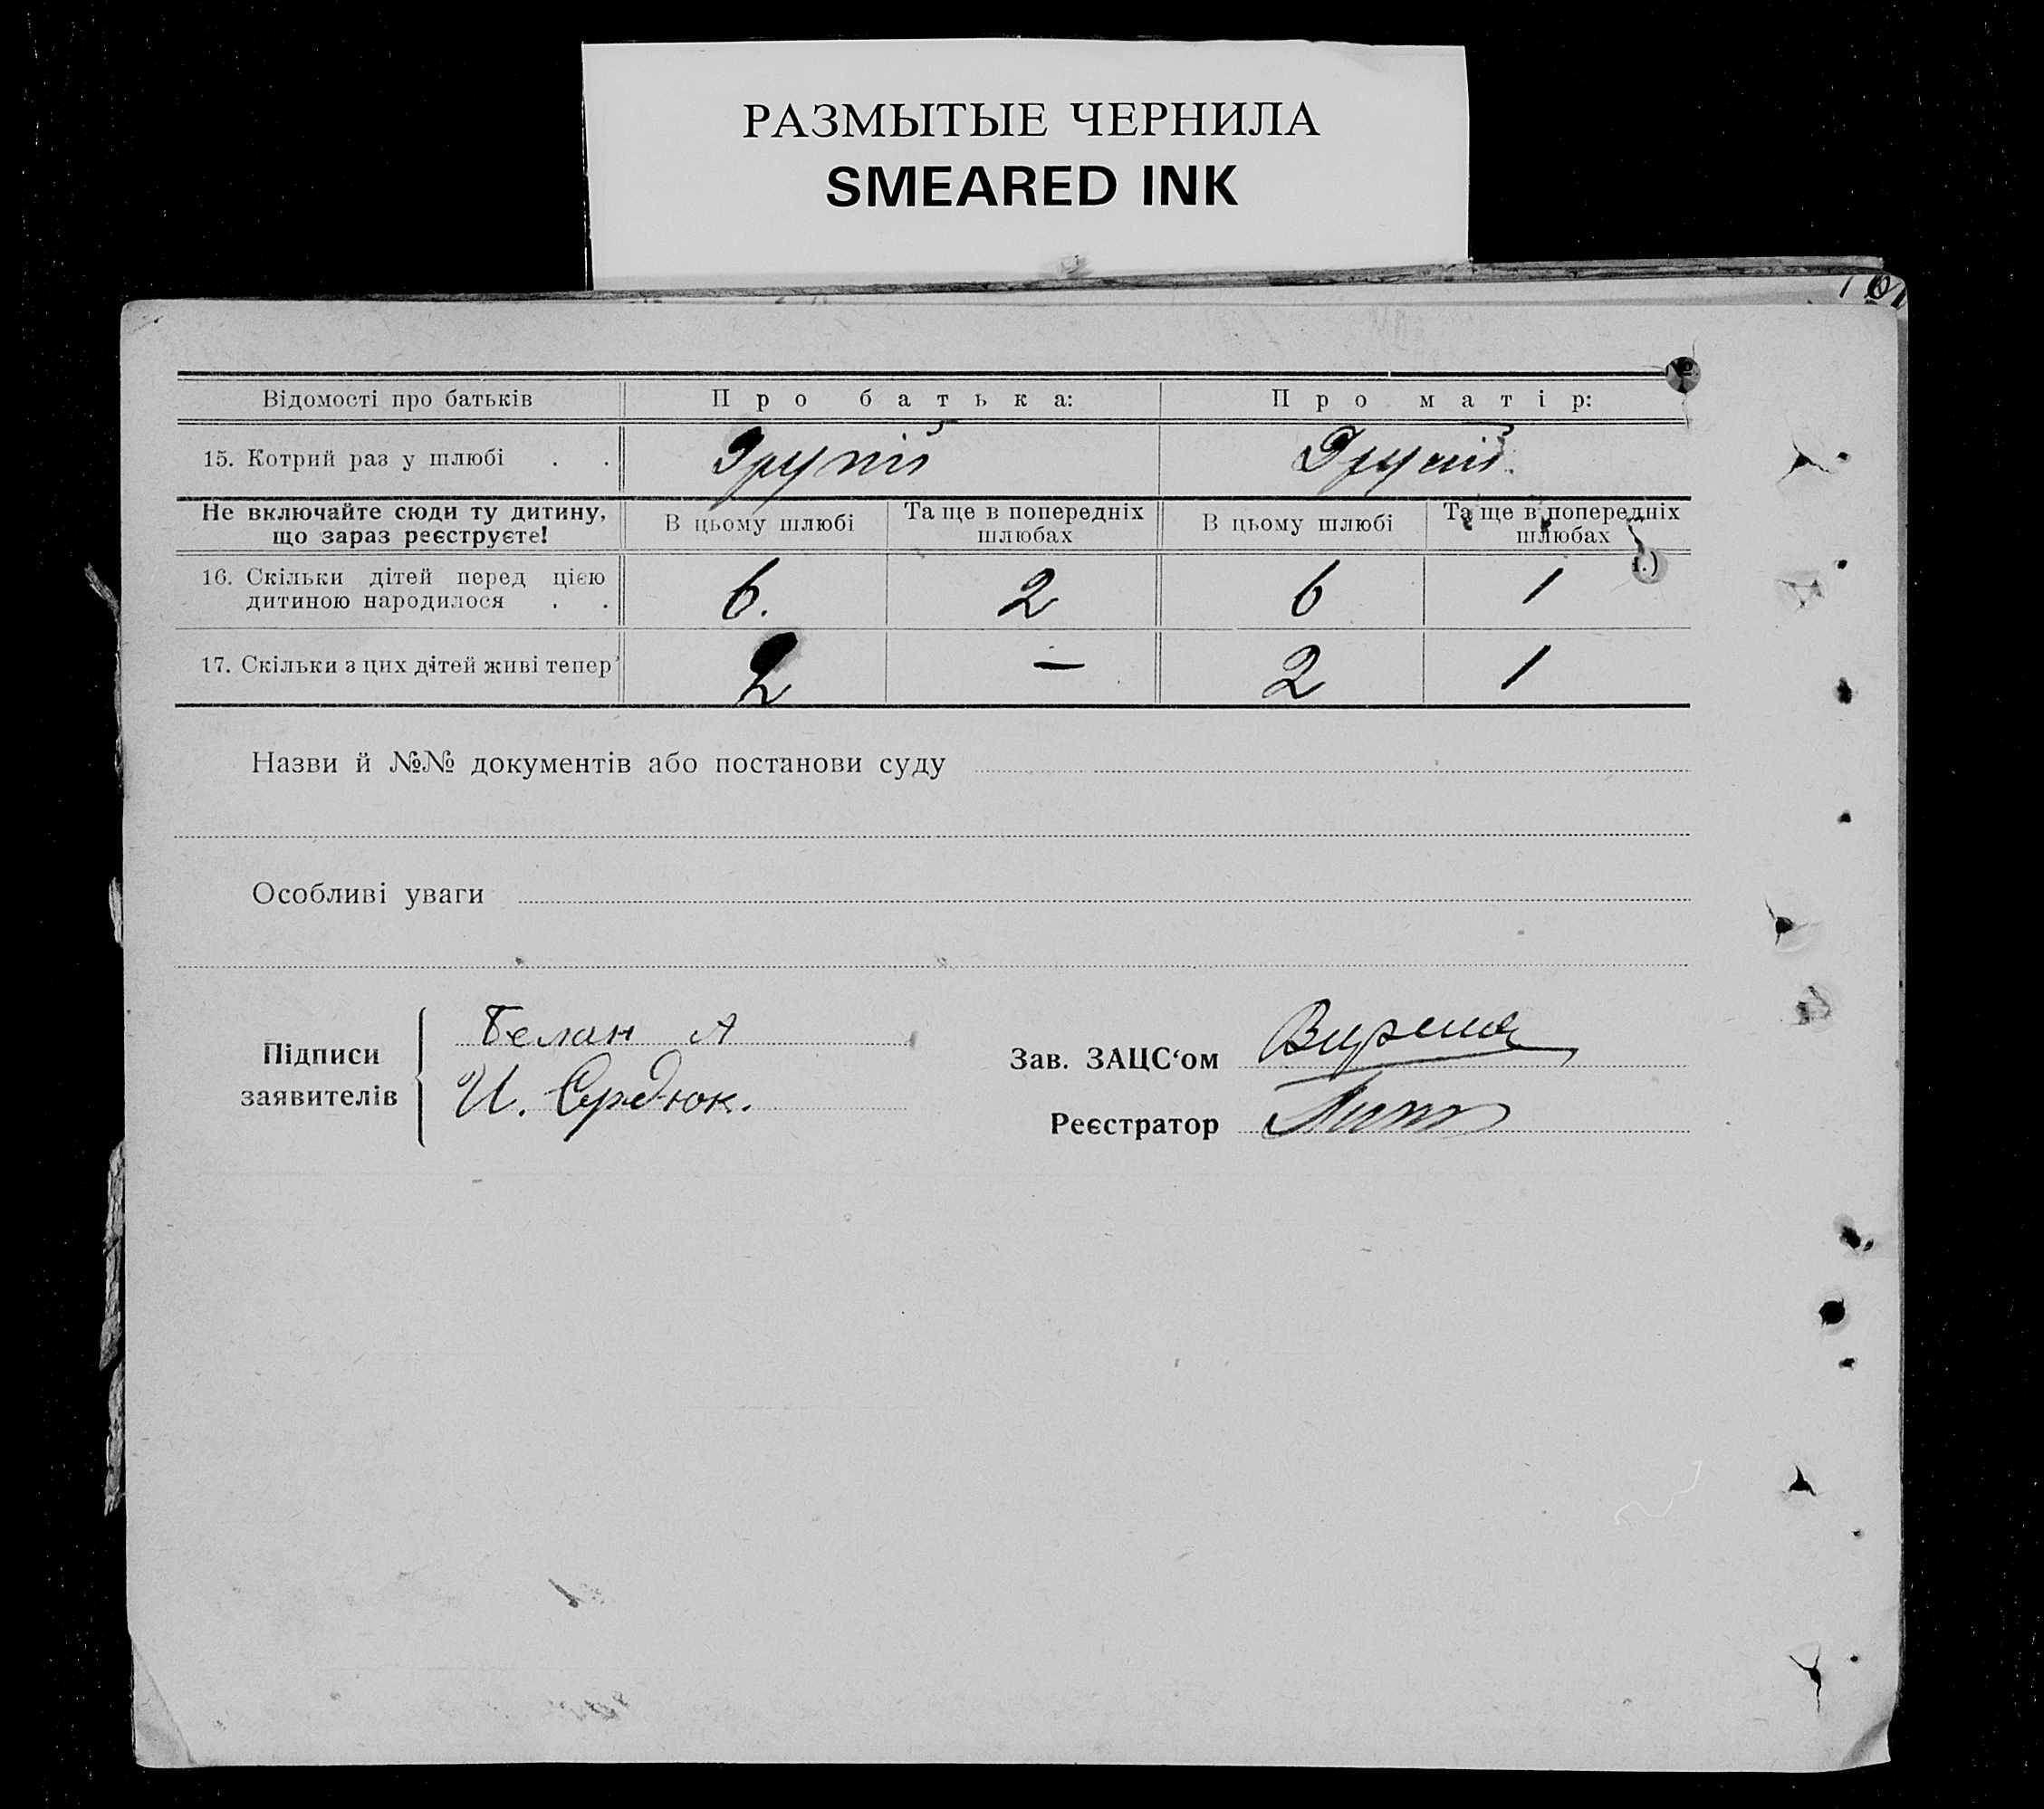 РАЗМЫТЫЕ ЧЕРНИЛА
SMEARED INK
Відомості про батьків Про батька: Про матір:
15. Котрий раз у шлюбі . . Другий Другий
Не включайте сюди ту дитину, що зараз реєструєте! В цьому шлюбі Та ще в попередніх шлюбах В цьому шлюбі Та ще в попередніх шлюбах
16. Скільки дітей перед цією дитиною народилося . . 6. 2 6 1
17. Скільки з цих дітей живі тепер 2 — 2 1
Назви й №№ документів або постанови суду
Особливі уваги
Підписи заявителів
Белан А
И. Сердюк.
Зав. ЗАЦС‘ом
Реєстратор